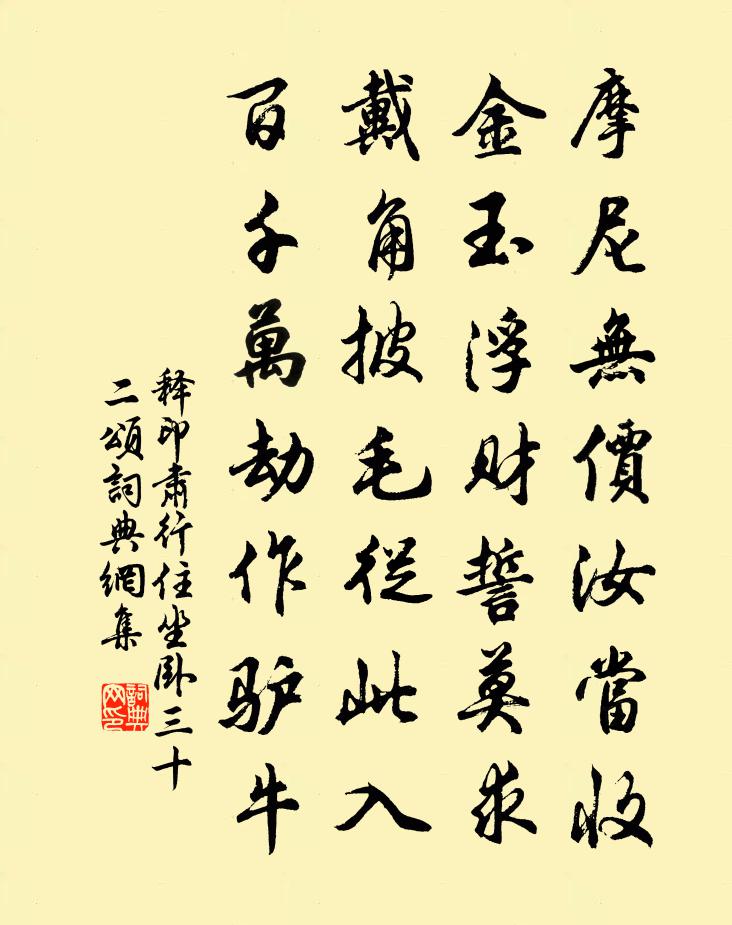 摩尼無價汝當收
金玉浮财誓莫求
戴角披毛從此入
百千萬劫作驴牛
释印肅行住坐卧三十
二頌詞典網集
詞典
网印